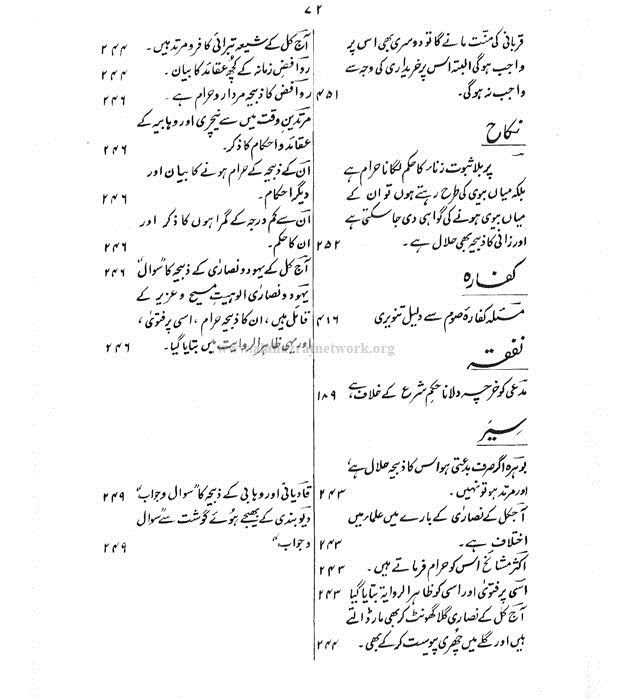 ۷۲
قربانی کی منّت مانے گا تو دوسری بھی اس پر
واجب ہوگی البتہ اس پر خریداری کی وجہ سے
واجب نہ ہوگی۔ ۴۵۱
نکاح
پر بلاثبوت زناء کا حکم لگانا حرام ہے
بلکہ میاں بیوی کی طرح رہتے ہوں تو ان کے
میاں بیوی ہونے کی گواہی دی جاسکتی ہے
اور زانی کا ذبیحہ بھی حلال ہے۔ ۲۵۲
کفارہ
مسئلہ کفارۂ صوم سے دلیل تنویری ۴۱۶
نفقہ
مدعی کو خرچہ دلانا حکمِ شرع کے خلاف ہے ۱۸۹
سِیَر
بوہرہ اگر صرف بدعتی ہو اس کا ذبیحہ حلال ہے
اور مرتد ہو تو نہیں۔ ۲۴۳
آجکل کے نصاری کے بارے میں علماء میں
اختلاف ہے۔ ۲۴۳
اکثر مشائخ اس کو حرام فرماتے ہیں۔ ۲۴۳
اسی پر فتوٰی اور اسی کو ظاہر الروایۃ بتایا گیا ۲۴۳
آج کل کے نصاری گلا گھونٹ کر بھی مار ڈالتے
ہیں اور گلے میں چھری پیوست کرکے بھی۔ ۲۴۴
آج کل کے شیعہ تبرائی کافر و مرتد ہیں۔ ۲۴۴
روافضِ زمانہ کے کچھ عقائد کا بیان۔ ۲۴۴
روافض کا ذبیحہ مردار و حرام ہے۔ ۲۴۶
مرتدینِ وقت میں سے نیچری اور وہابیہ کے
عقائد و احکام کا ذکر۔ ۲۴۶
ان کے ذبیحہ کے حرام ہونے کا بیان اور
دیگر احکام۔ ۲۴۶
ان سے کم درجہ کے گمراہوں کا ذکر اور
ان کا حکم۔ ۲۴۶
آج کل کے یہود و نصارٰی کے ذبیحہ کا "سوال" ۲۴۶
یہود و نصارٰی الوہیتِ مسیح و عزیر کے
قائل ہیں، ان کا ذبیحہ حرام، اسی پر فتوٰی،
اور یہی ظاہر الروایت میں بتایا گیا۔ ۲۴۶
قادیانی اور وہابی کے ذبیحہ کا "سوال وجواب" ۲۴۹
دیوبندی کے بھیجے ہوئے گوشت سے "سوال
و جواب" ۲۴۹
network.org